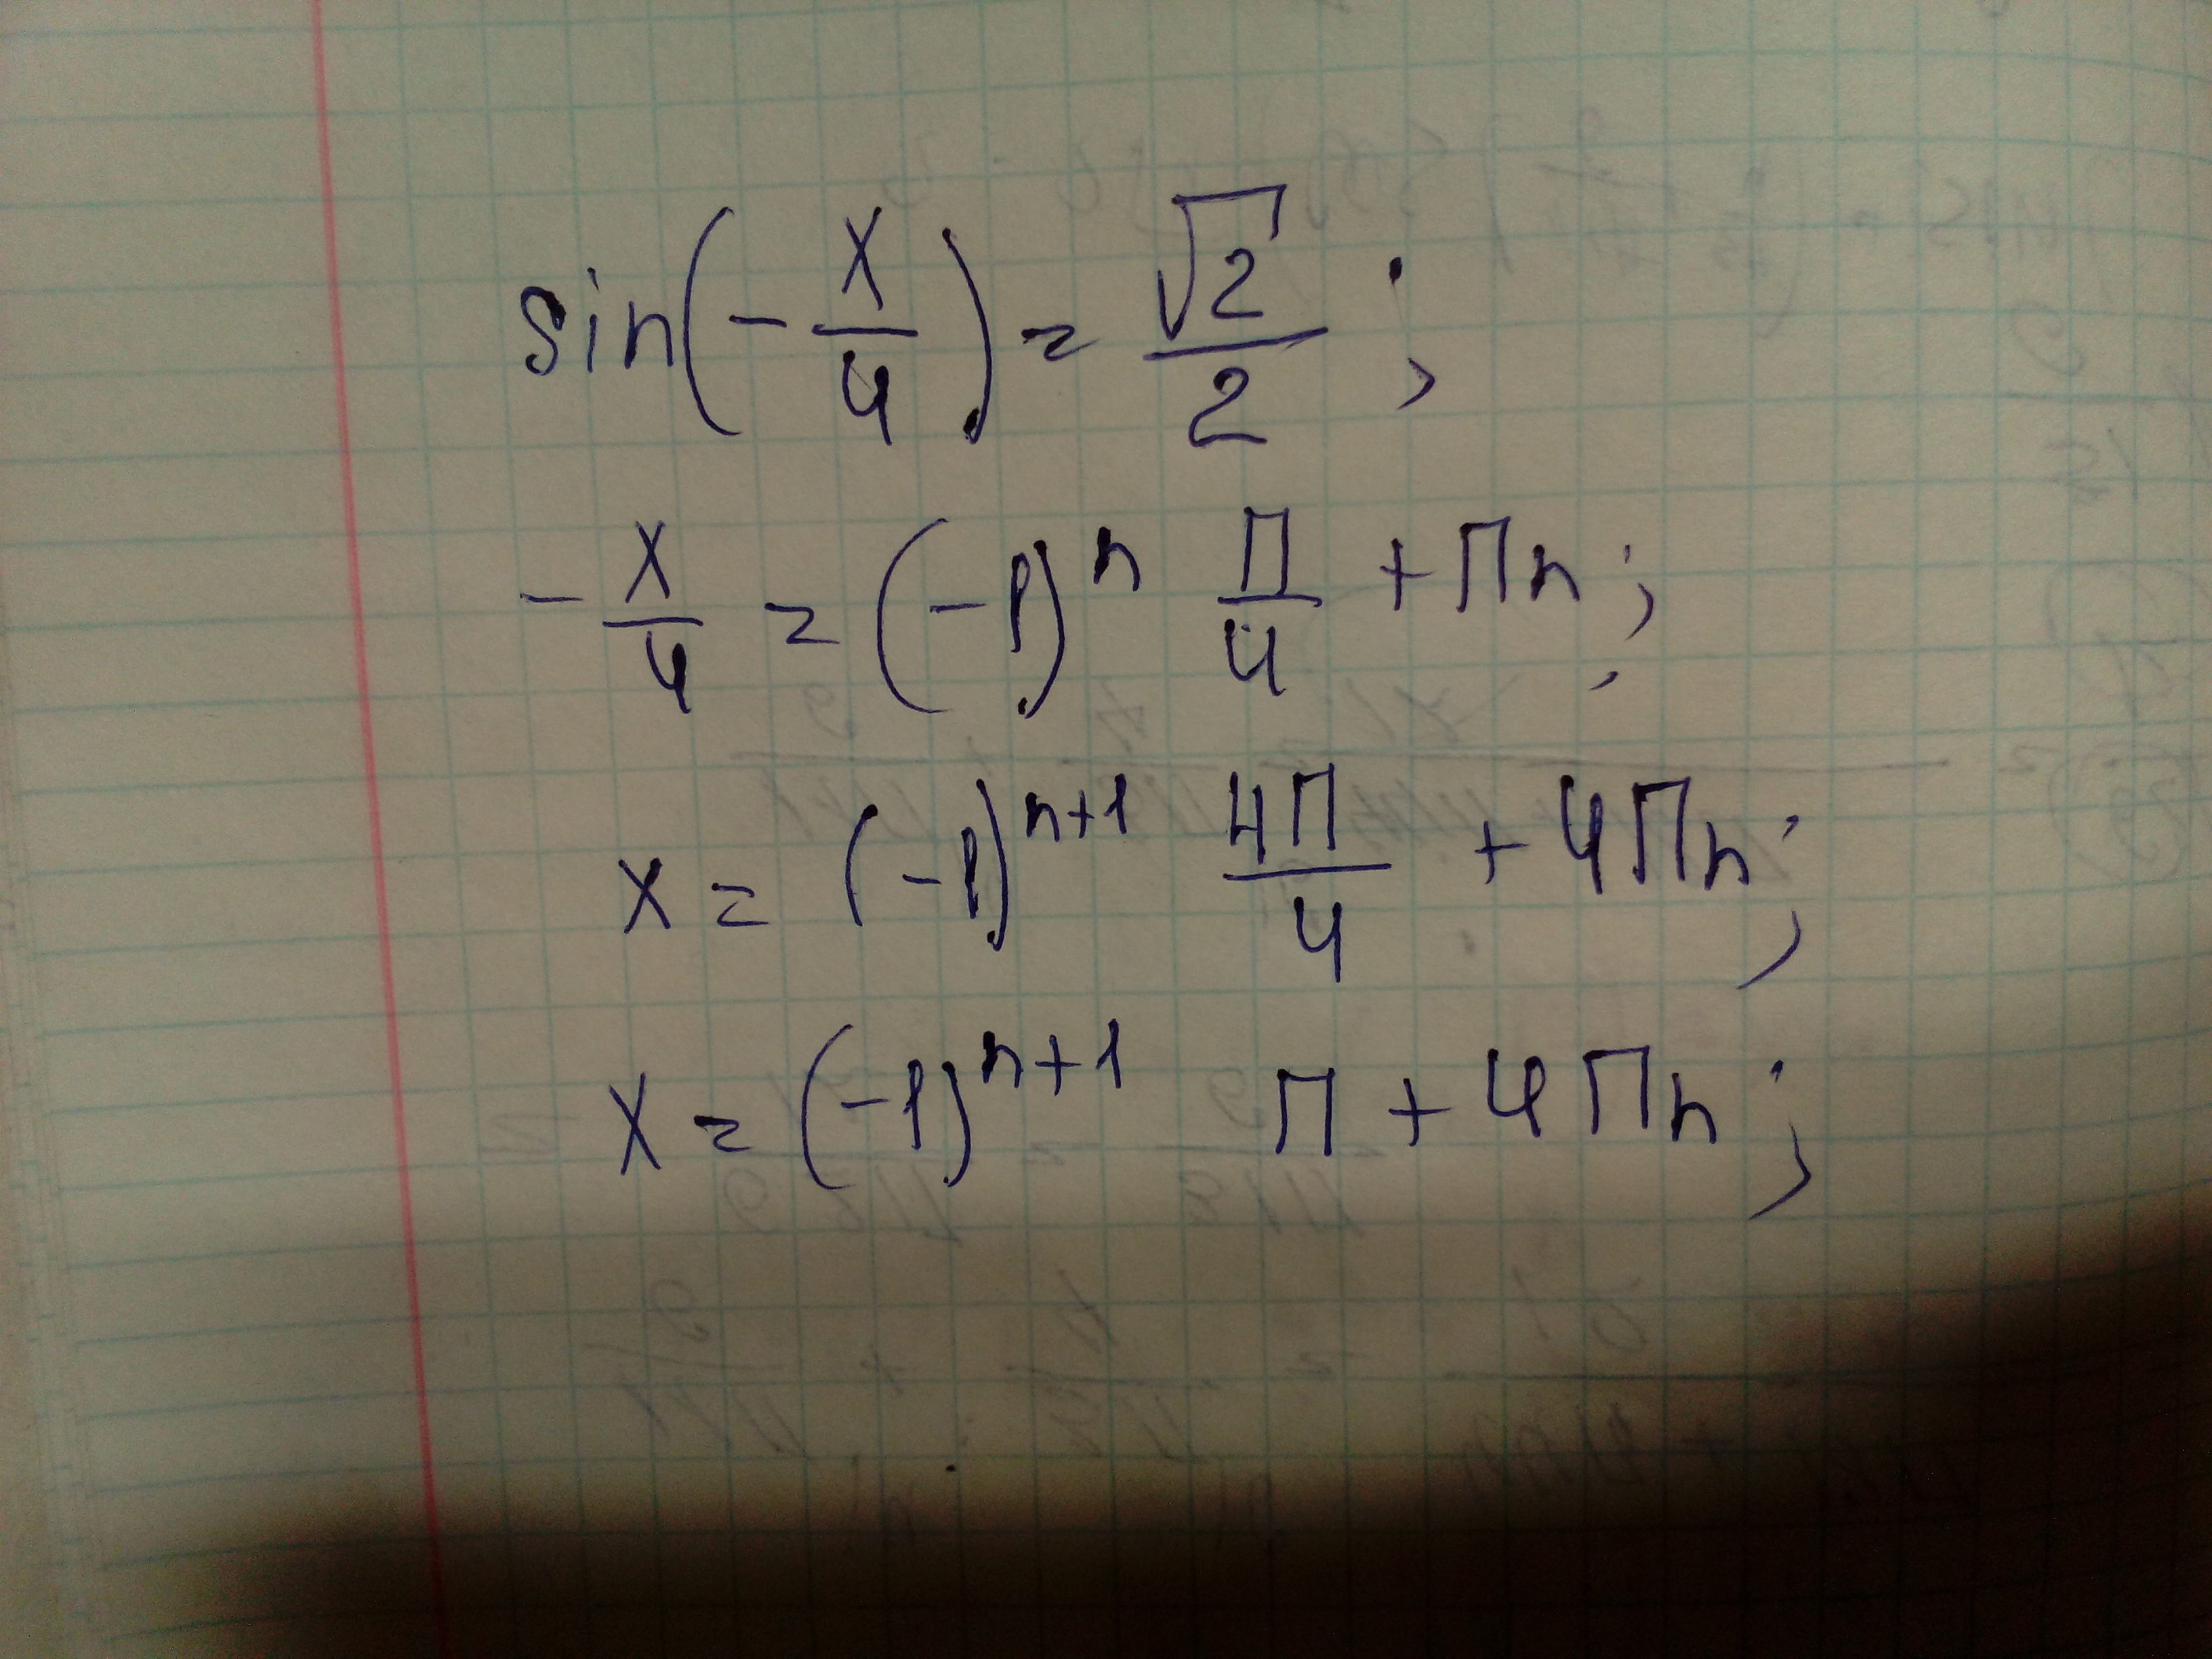 sin(-x/4) = √2/2 ;
-x/4 = (-1)^n П/4 + Пn ;
x = (-1)^(n+1) 4П/4 + 4Пn ;
x = (-1)^(n+1) П + 4Пn ;